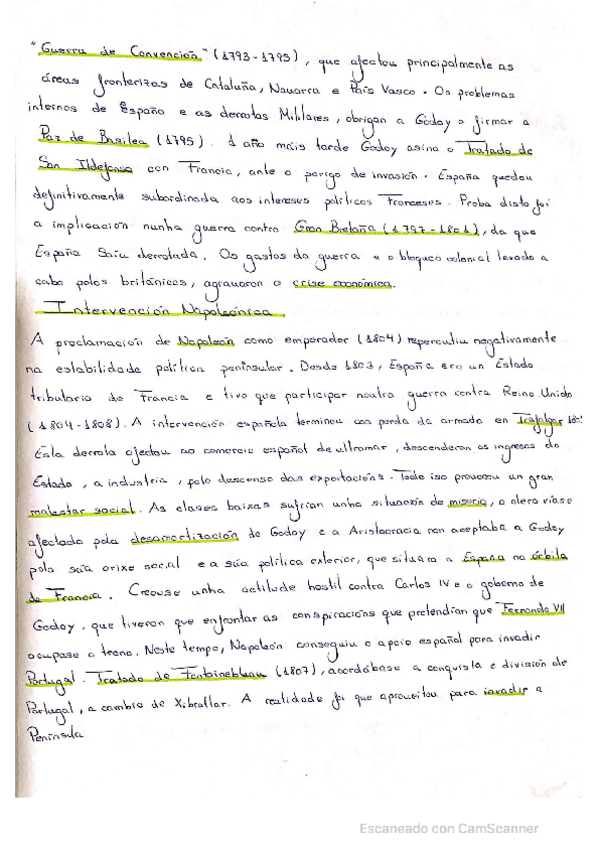 "Guerra de Convención" (1793-1795), que afectou principalmente as
áreas fronterizas de Cataluña, Navarra e País Vasco. Os problemas
internos de España e as derrotas Militares, obrigan a Godoy a firmar a
Paz de Basilea (1795). 1 año máis tarde Godoy asina o Tratado de
San Ildefonso con Francia, ante o perigo de invasión. España quedou
definitivamente subordinada aos intereses políticos Franceses. Proba disto foi
a implicación nunha guerra contra Gran Bretaña (1797-1801), da que
España Saiu derrotada. Os gastos da guerra e o bloqueo colonial levado a
cabo polos británicos, agravaron a crise económica.
Intervención Napoleónica
A proclamación de Napoleón como emperador (1804) repercutiu negativamente
na estabilidade política peninsular. Desde 1803, España era un Estado
tributario de Francia e tivo que participar noutra guerra contra Reino Unido
(1804-1808). A intervención española terminou coa perda da armada en Trafalgar
Esta derrota afectou ao comercio español de ultramar, descenderon os ingresos do
Estado, a industria, polo descenso das exportacións. Todo iso provocou un gran
malestar social. As clases baixas sufrían unha situación de miseria, o clero viase
afectado pola desamortización de Godoy e a Aristocracia non aceptaba a Godoy
pola súa orixe social e a súa política exterior, que situara a España na órbita
de Francia. Creouse unha actitude hostil contra Carlos IV e o goberno de
Godoy, que tiveron que enfrontar as conspiracións que pretendían que Fernando VII
ocupase o trono. Neste tempo, Napoleón conseguiu o apoio español para invadir
Portugal. Tratado de Fontainebleau (1807), acordábase a conquista e división de
Portugal, a cambio de Xibraltar. A realidade foi que aproveitou para invadir a
Península
Escaneado con CamScanner